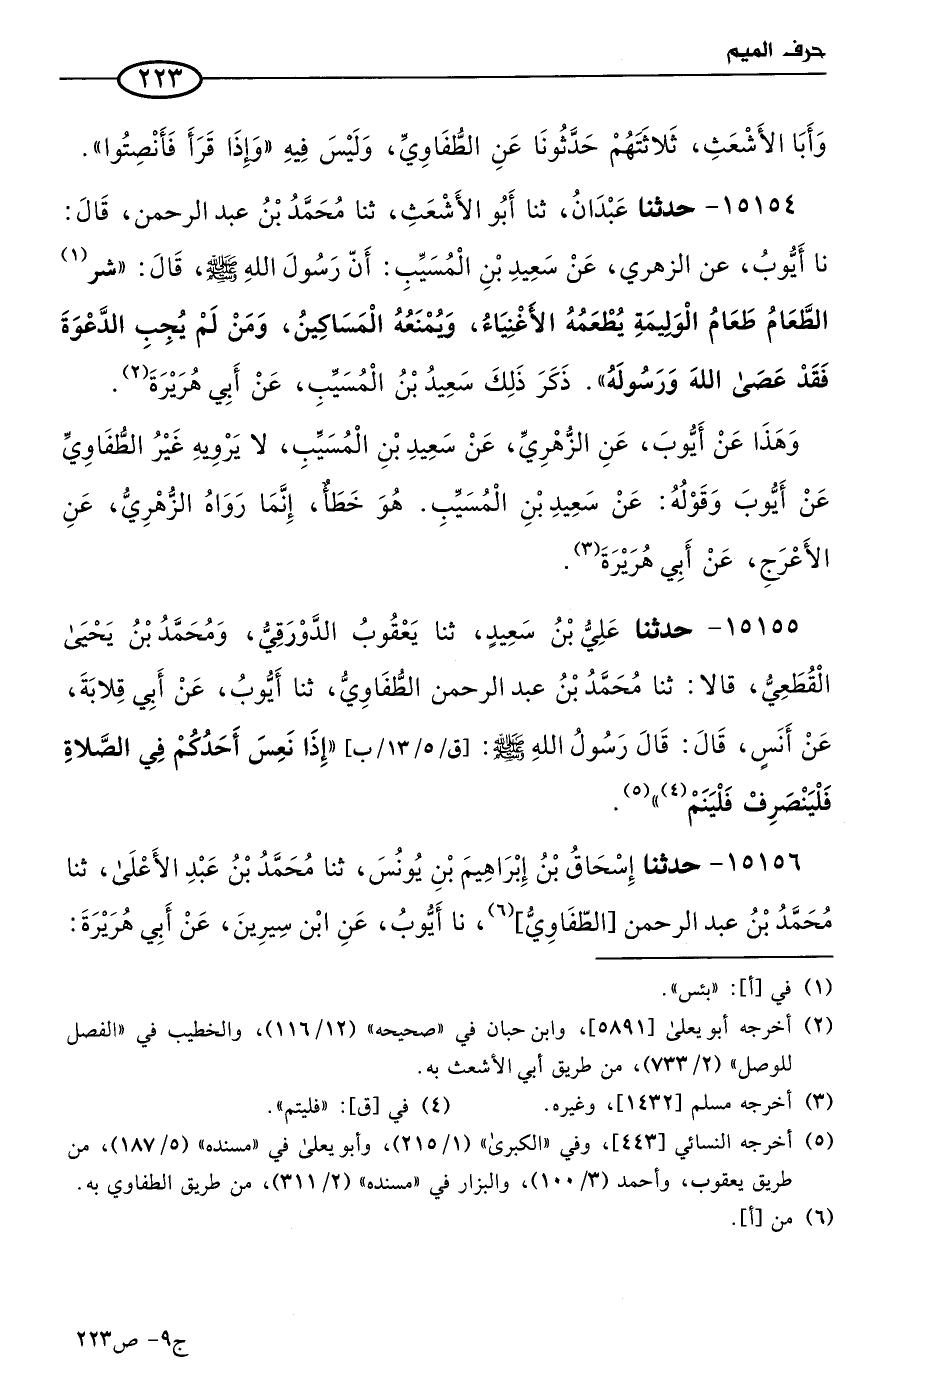 حرف الميم
٢٢٣
وَأَبَا الأَشْعَثِ، ثَلاثَتَهُمْ حَدَّثُونَا عَنِ الطُّفَاوِيِّ، وَلَيْسَ فِيهِ «وَإِذَا قَرَأَ فَأَنْصِتُوا».
١٥١٥٤- حدثنا عَبْدَانُ، ثنا أَبُو الأَشْعَثِ، ثنا مُحَمَّدُ بْنُ عبد الرحمن، قَالَ:
نا أَيُّوبُ، عن الزهري، عَنْ سَعِيدِ بْنِ الْمُسَيِّبِ: أَنّ رَسُولَ اللهِ ﷺ، قَالَ: «شر(١)
الطَّعَامُ طَعَامُ الْوَلِيمَةِ يُطْعَمُهُ الأَغْنِيَاءُ، وَيُمْنَعُهُ الْمَسَاكِينُ، وَمَنْ لَمْ يُجِبِ الدَّعْوَةَ
فَقَدْ عَصَىٰ اللهَ وَرَسُولَهُ». ذَكَرَ ذَلِكَ سَعِيدُ بْنُ الْمُسَيِّبِ، عَنْ أَبِي هُرَيْرَةَ(٢).
وَهَذَا عَنْ أَيُّوبَ، عَنِ الزُّهْرِيِّ، عَنْ سَعِيدِ بْنِ الْمُسَيِّبِ، لا يَرْوِيهِ غَيْرُ الطُّفَاوِيِّ
عَنْ أَيُّوبَ وَقَوْلُهُ: عَنْ سَعِيدِ بْنِ الْمُسَيِّبِ. هُوَ خَطَأٌ، إِنَّمَا رَوَاهُ الزُّهْرِيُّ، عَنِ
الأَعْرَجِ، عَنْ أَبِي هُرَيْرَةَ(٣).
١٥١٥٥- حدثنا عَلِيُّ بْنُ سَعِيدٍ، ثنا يَعْقُوبُ الدَّوْرَقِيُّ، وَمُحَمَّدُ بْنُ يَحْيَىٰ
الْقُطَعِيُّ، قالا: ثنا مُحَمَّدُ بْنُ عبد الرحمن الطُّفَاوِيُّ، ثنا أَيُّوبُ، عَنْ أَبِي قِلابَةَ،
عَنْ أَنَسٍ، قَالَ: قَالَ رَسُولُ اللهِ ﷺ: [ق/٥/١٣/ب] «إِذَا نَعِسَ أَحَدُكُمْ فِي الصَّلاةِ
فَلْيَنْصَرِفْ فَلْيَنَمْ(٤)»(٥).
١٥١٥٦- حدثنا إِسْحَاقُ بْنُ إِبْرَاهِيمَ بْنِ يُونُسَ، ثنا مُحَمَّدُ بْنُ عَبْدِ الأَعْلَىٰ، ثنا
مُحَمَّدُ بْنُ عبد الرحمن [الطّفَاوِيُّ](٦)، نا أَيُّوبُ، عَنِ ابْن سِيرِينَ، عَنْ أَبِي هُرَيْرَةَ:
(١) في [أ]: «بئس».
(٢) أخرجه أبو يعلىٰ [٥٨٩١]، وابن حبان في «صحيحه» (١٢/١١٦)، والخطيب في «الفصل
للوصل» (٢/٧٣٣)، من طريق أبي الأشعث به.
(٣) أخرجه مسلم [١٤٣٢]، وغيره. (٤) في [ق]: «فليتم».
(٥) أخرجه النسائي [٤٤٣]، وفي «الكبرىٰ» (١/٢١٥)، وأبو يعلىٰ في «مسنده» (٥/١٨٧)، من
طريق يعقوب، وأحمد (٣/١٠٠)، والبزار في «مسنده» (٢/٣١١)، من طريق الطفاوي به.
(٦) من [أ].
ج٩- ص٢٢٣